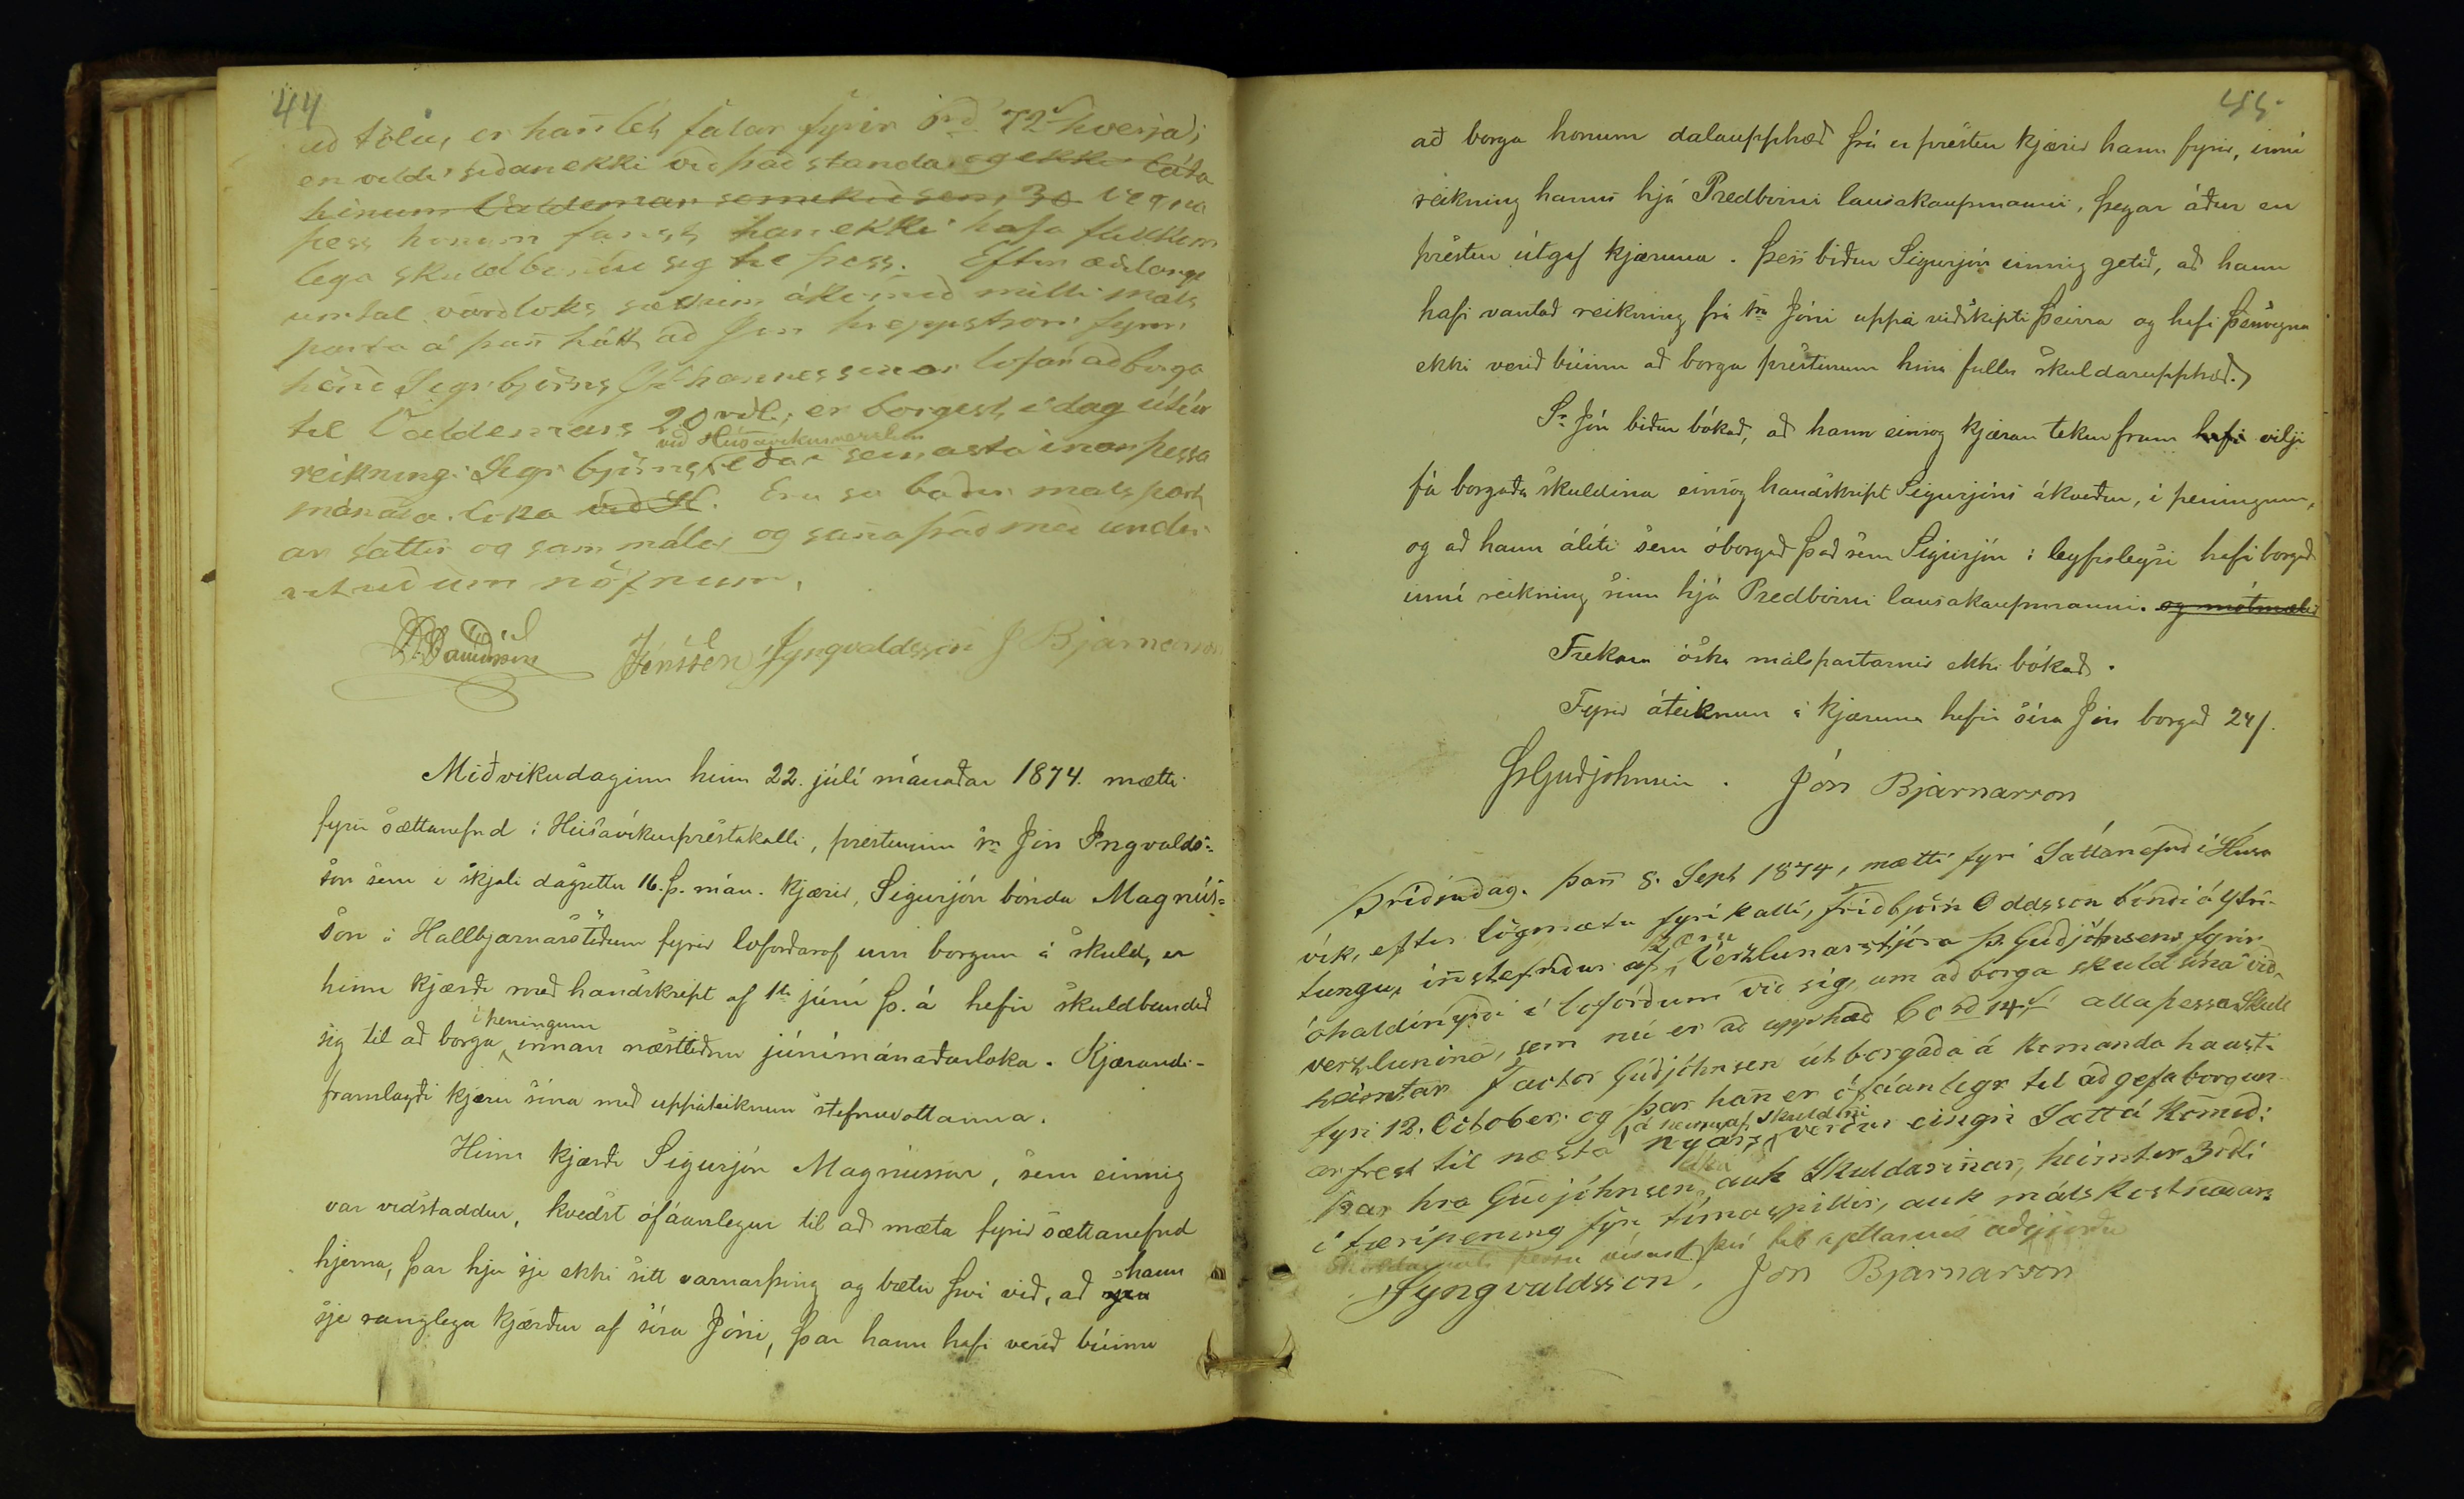 44
að tölu, er hañ lét falar fyrir 1rd. 72s hverja,
en vildi siðan ekki við það standa og ekki láta
hinum Valdemar semekið sem 30 vegna
þess honum fanst han ekki hafa fullkom
lega skuldbundið sig til þess. Eftir
umtal varð loks sættum ákomið milli máls
parta á þañ hátt að Jón hreppstjori fyrir
hönd Sigrbjörns Jóhannessonar lofar að borga
til Valdemars 20 rdl; er borgist i dag útúr
við Húsavikurverslun
reikning Sigrbjörns eða i seinasta inan þessa
mánaða. loka við H. Eru so báðir máls part
ar sáttir og sammála, og sana það með undir
rituðum nöfnum.
Jónssen JYngvaldsson J Bjarnarson
Miðvikudaginn hinn 22. júlí mánaðar 1874. mætti
fyrir sættanefnd í Húsavíkurprestakalli, presturinn sra Jón Ingvalds-
son sem í skjali dagsettu 16. þ. mán. kjærir, Sigurjón bónda Magnús-
son á Hallbjarnarstöðum fyrir loforðarof um borgun á skuld, er
hinn kjærði með handskript af 1ta júní þ. á hefir skuldbundið
í peningum
sig til að borga innan næstliðna júnímánaðarloka. Kjærandi
framlagði kjæru sína með uppáteiknun stefnuvottanna.
Hinn kjærði Sigurjón Magnússon, sem einnig
var viðstaddur, kvedst ófáanlegur til að mæta fyrir sættanefnd
hjerna, þar hjer sje ekki sitt varnarþing og bætir því við, að hann
sje ranglega kjærður af síra Jóni, þar hann hafi verið búinn
45.
að borga honum dalaupphæð þá er prestur kjærir hann fyrir, inní
reikning hanns hjá Predbirni lausakaupmanni, þegar áður en
prestur útgaf kjæruna. Þess biður Sigurjón einnig getið, að hann
hafi vantað reikning frá sra Jóni uppá viðskipti þeirra og hafi þessvegna
ekki verið búinn að borga prestinum hina fullu skuldarupphæð.
Sr Jón biður bókað, að hann einsog kjæran tekur fram hafi vilji
fá borgaða skuldina einsog handskript Sigurjóns ákveður, í peningum,
og að hann áliti sem óborgað það sem Sigurjón í leyfisleysi hafi borgað
inní reikning sinn hjá Predbirni lausakaupmanni. og mótmælir
Frekara óska málspartarnir ekki bókað.
Fyrir áteiknun á kjæruna hefir síra Jón borgað 24s.
ÞGuðjohnsen. Jón Bjarnarson
Þriðjudag. þañ 8. Sept 1874, mætti fyri Sáttanefnd i Húsa
vik, eftir lögmætu fyrikalli, Friðbjörn Oddsson bóndi á Ytri-
tungu, iñstefndur af Verzlunarstjóra Þ. Guðjóhnsens fyrir
óhaldinyrði i loforðum við sig, um að borga skuld sína við
verzlunina, sem nú er að upphæð 60 rd 14s. alla þessa Skuld
heimtar Factor Guðjóhnsen útborgaða á komanda hausti
fyri 12. October. og þar hañ er ófáanlegr til að gefa borgun
á skuldini
arfrest til næsta nyárs, verður eingin Sætt á komið:
Þar hra Guðjóhnsen, auk Skuldarinnar, heimter 3rdl.
i færipening fyri tímaspillir, auk málskostnaðar.
þessu vísast því til rjettarins aðgjörða
JYngvaldsson, Jón Bjarnarson